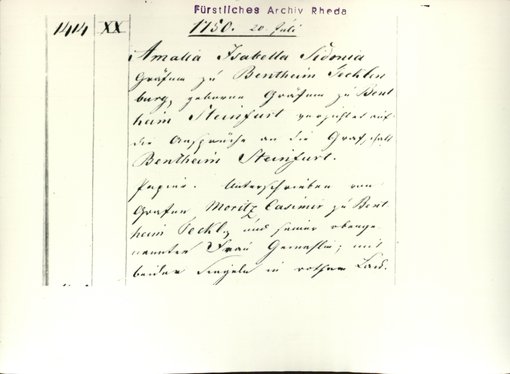 Fürstliches Archiv Rheda
1414 XX 1750. 20. Juli
Amalia Isabella Sidonia
Gräfin zu Bentheim Tecklen
burg, geborne Gräfin zu Bent
heim Steinfurt verzichtet auf
die Ansprüche an die Grafschaft
Bentheim Steinfurt.
Papier. Unterschrieben vom
Grafen Moritz Casimir zu Bent
heim Teckl. und seiner obenge
nannten Frau Gemahlin; mit
beider Siegeln in rothem Lack.